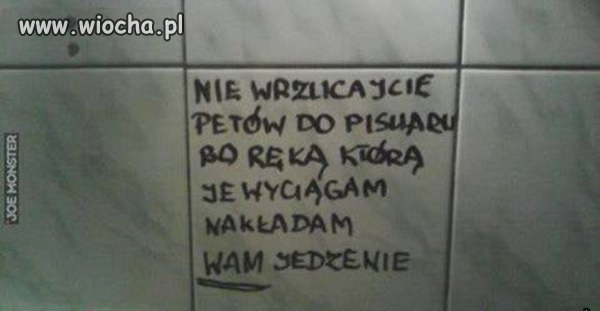 www.wiocha.pl
NIE WRZUCAJCIE
PETÓW DO PISUARU
BO RĘKĄ KTÓRĄ
JE WYCIĄGAM
NAKŁADAM
WAM JEDZENIE
JOE MONSTER